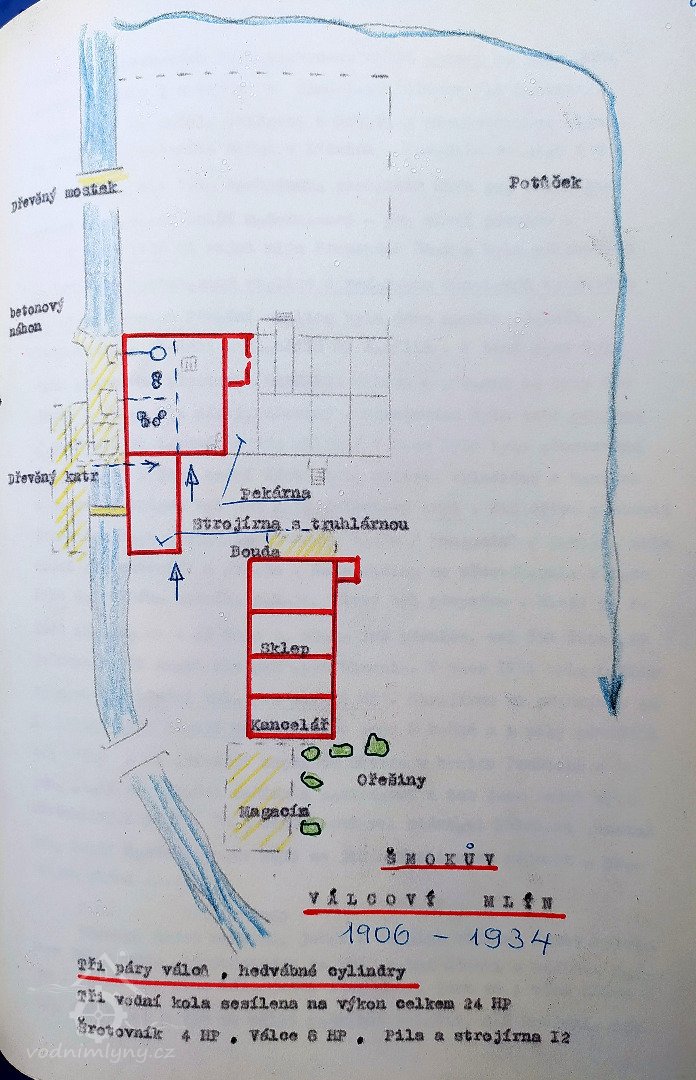 Potůček
dřevěný mostek
betonový
náhon
Dřevěný katr
Pekárna
Strojírna s truhlárnou
Bouda
Sklep
Kancelář
Ořešiny
Magacín
ŠMOKŮV
VÁLCOVÝ MLÝN
1906 - 1934
Tři páry válců , hedvábné cylindry
Tři vodní kola sesílena na výkon celkem 24 HP
Šrotovník 4 HP , Válce 8 HP , Pila a strojírna I2
vodnimlyny.cz